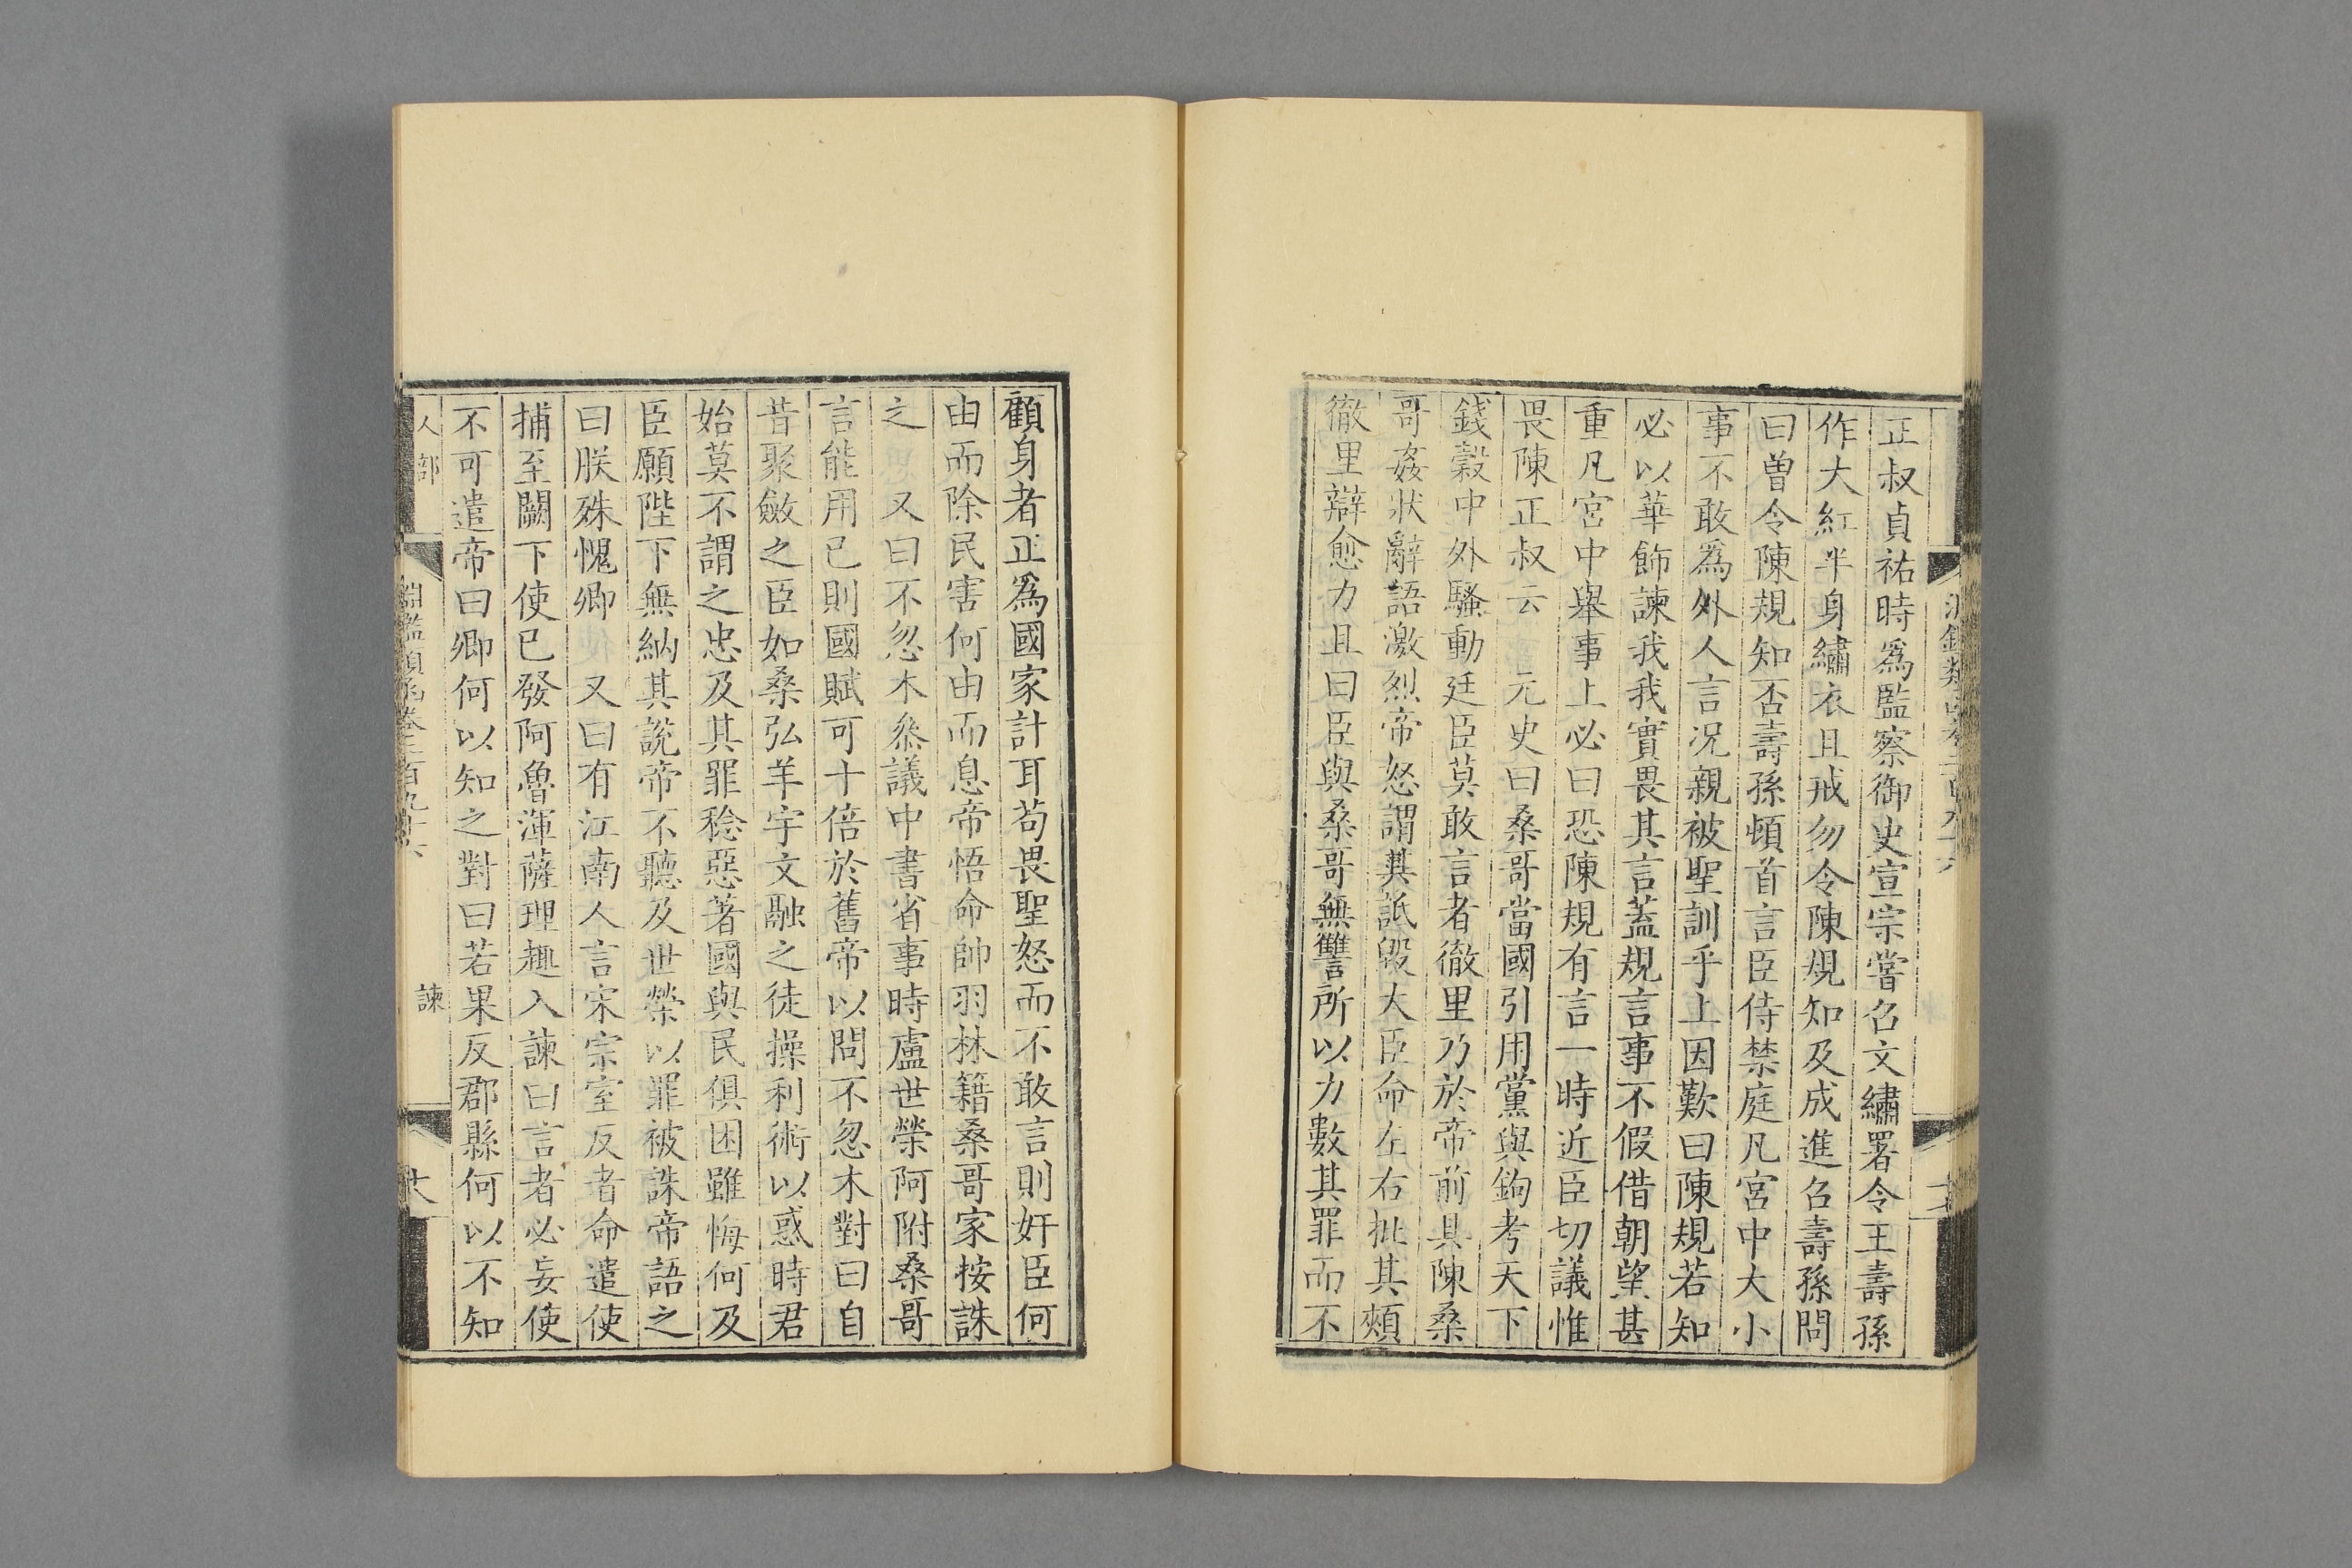 正叔貞祐時爲監察御史宣宗嘗召文繡署令王壽孫
作大紅半身繡衣且戒勿令陳規知及成進召壽孫問
曰曾令陳規知否壽孫頓首言臣侍禁庭凡宮中大小
事不敢爲外人言况親被聖訓乎上因歎曰陳規若知
必以華飾諫我我實畏其言蓋規言事不假借朝望甚
重凡宮中舉事上必曰恐陳規有言一時近臣切議惟
畏陳正叔云 元史曰桑哥當國引用黨與鉤考天下
錢穀中外騷動廷臣莫敢言者徹里乃於帝前具陳桑
哥姦狀辭語激烈帝怒謂其詆毀大臣命左右批其頰
徹里辯愈力且曰臣與桑哥無讐所以力數其罪而不
顧身者正爲國家計耳苟畏聖怒而不敢言則奸臣何
由而除民害何由而息帝悟命帥羽林籍桑哥家按誅
之 又曰不忽木叅議中書省事時盧世榮阿附桑哥
言能用已則國賦可十倍於舊帝以問不忽木對曰自
昔聚斂之臣如桑弘羊宇文融之徒操利術以惑時君
始莫不謂之忠及其罪稔惡著國與民俱困雖悔何及
臣願陛下無納其說帝不聽及世榮以罪被誅帝語之
曰朕殊愧卿 又曰有江南人言宋宗室反者命遣使
捕至闕下使已發阿魯渾薩理趣入諫曰言者必妄使
不可遣帝曰卿何以知之對曰若果反郡縣何以不知
人部 淵鑑類函卷二百九十六 諫 十八